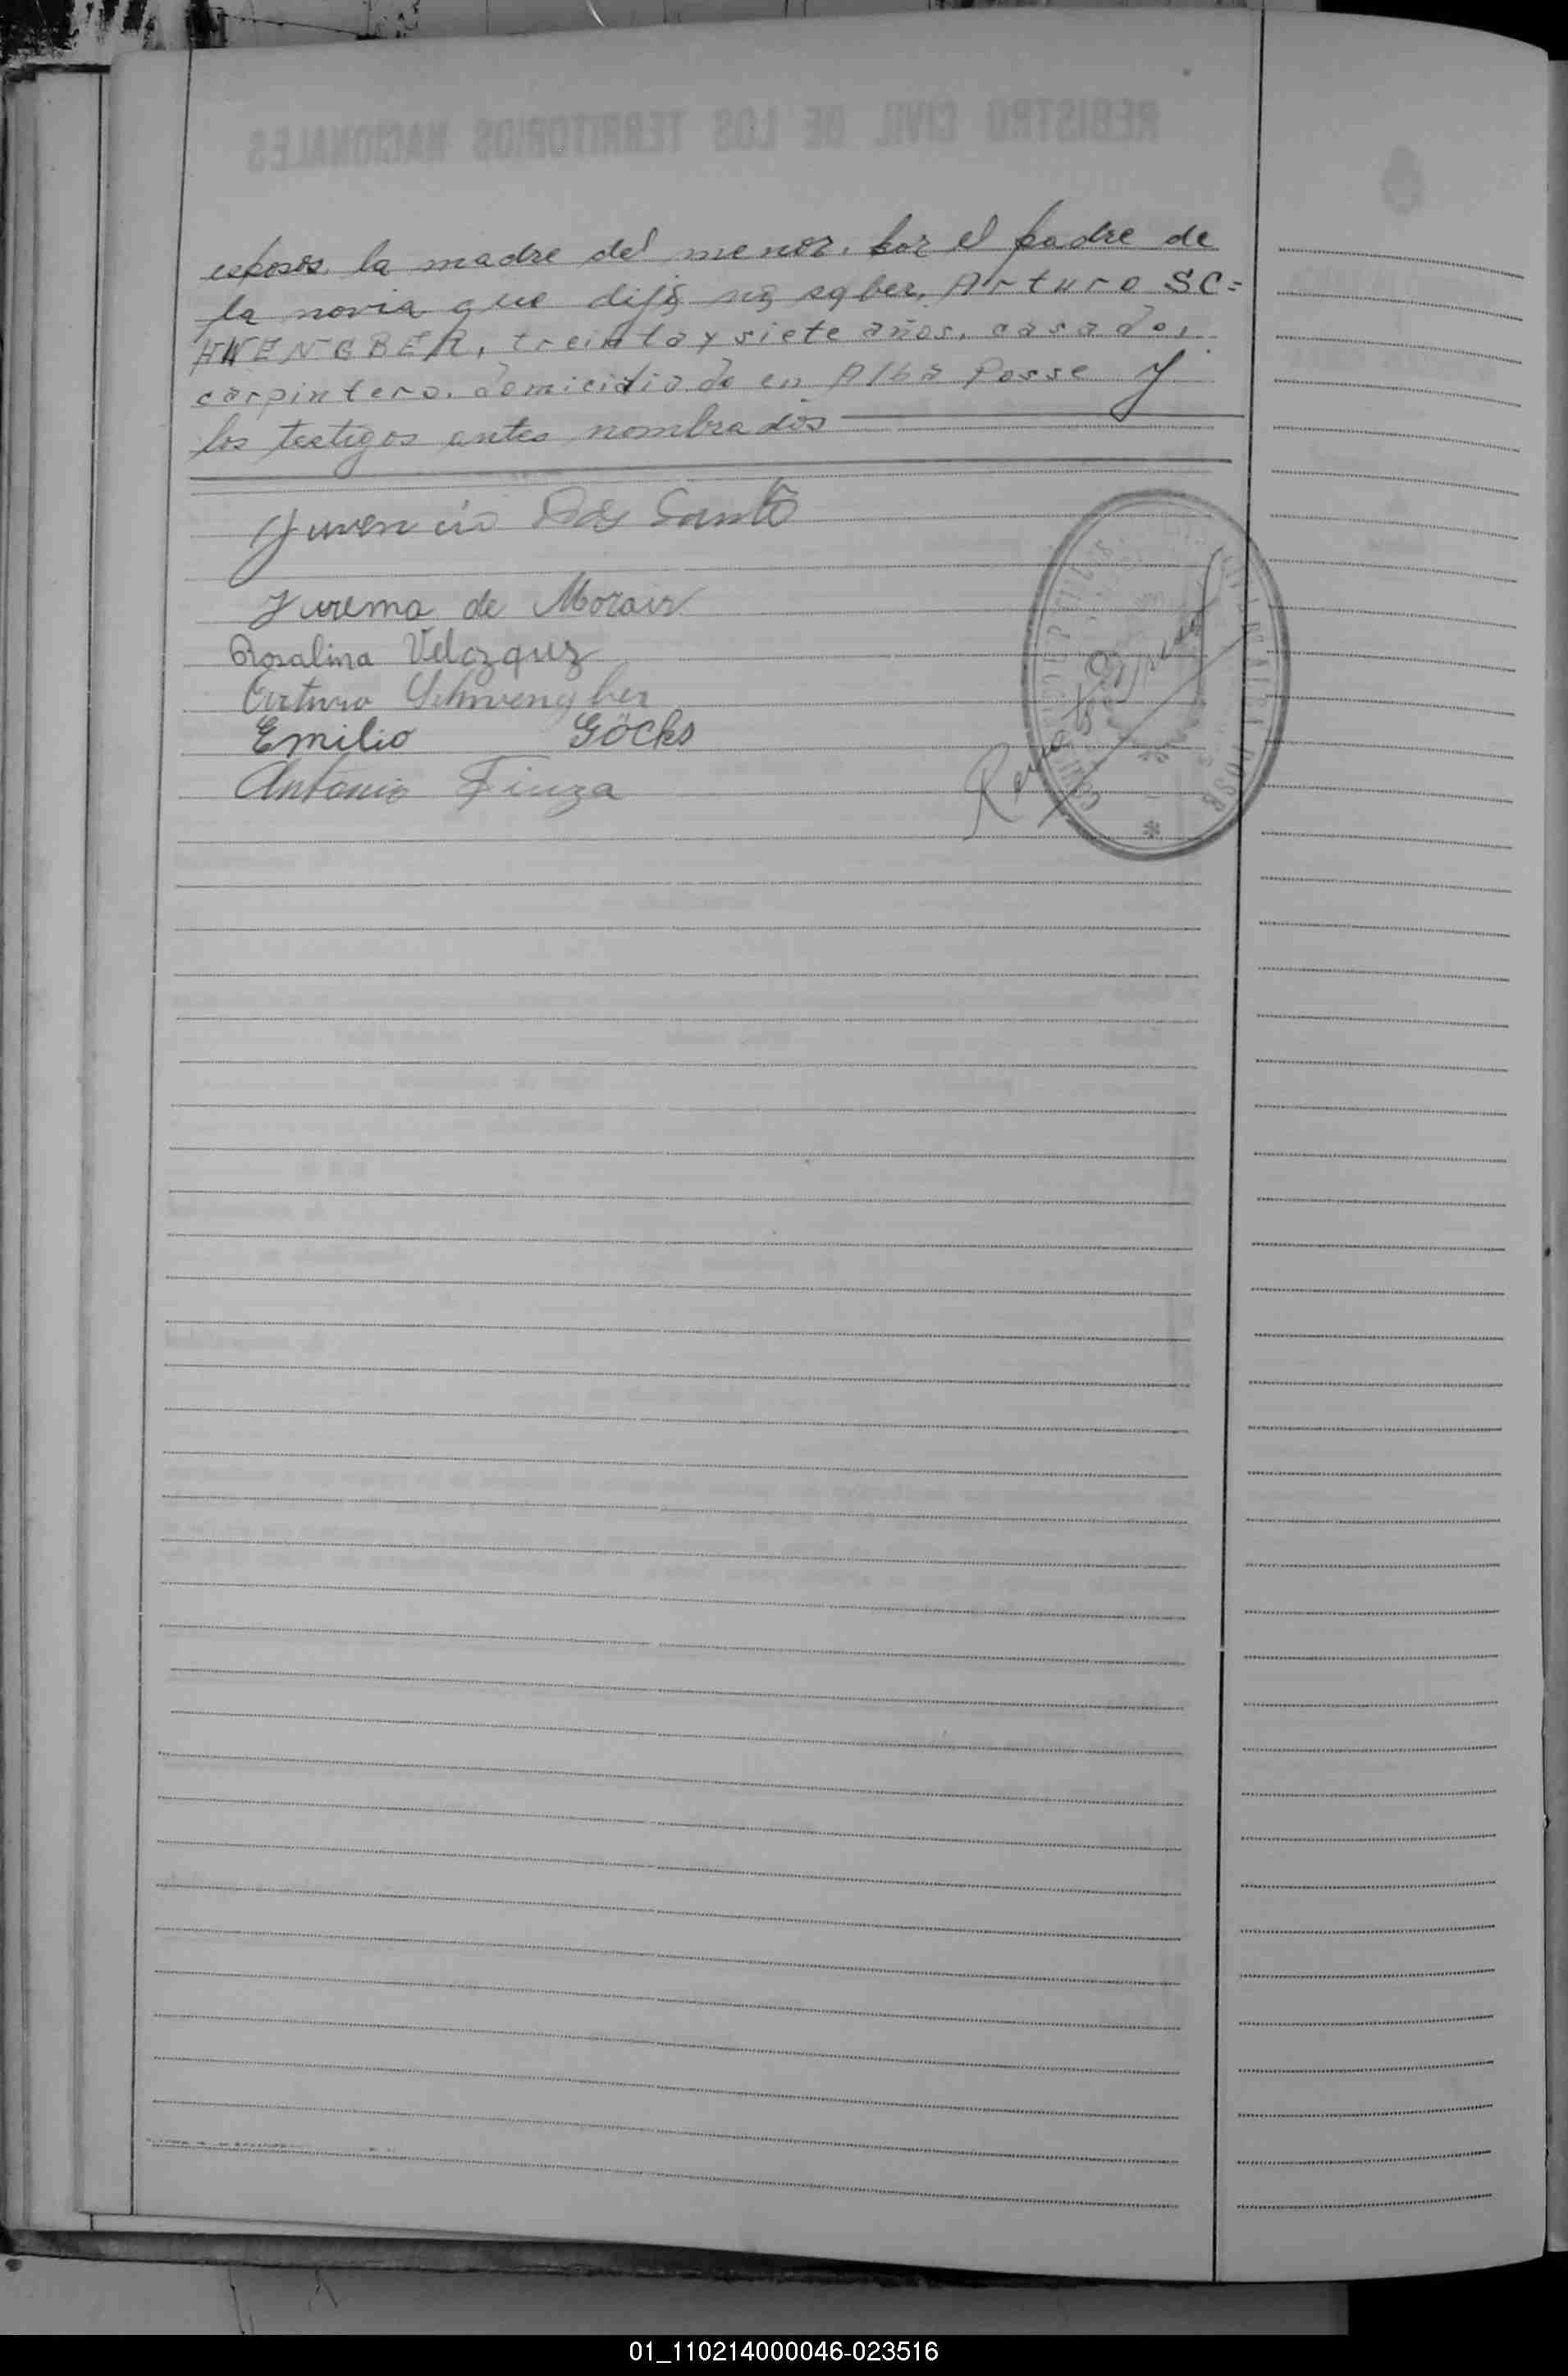 esposos, la madre del menor, por el padre de
la novia que dijo no saber, Arturo SC=
HWENGBER, treinta y siete años, casado,
carpintero, domiciliado en Alba Posse y
los testigos antes nombrados
Juvencio Dos Santo
Jurema de Morais
Rosalina Velozquez
Arturo Schwengber
Emilio Göcks
Antonio Fiuza
REGISTRO CIVIL DE LOS TERRITORIOS NACIONALES
01_110214000046-023516